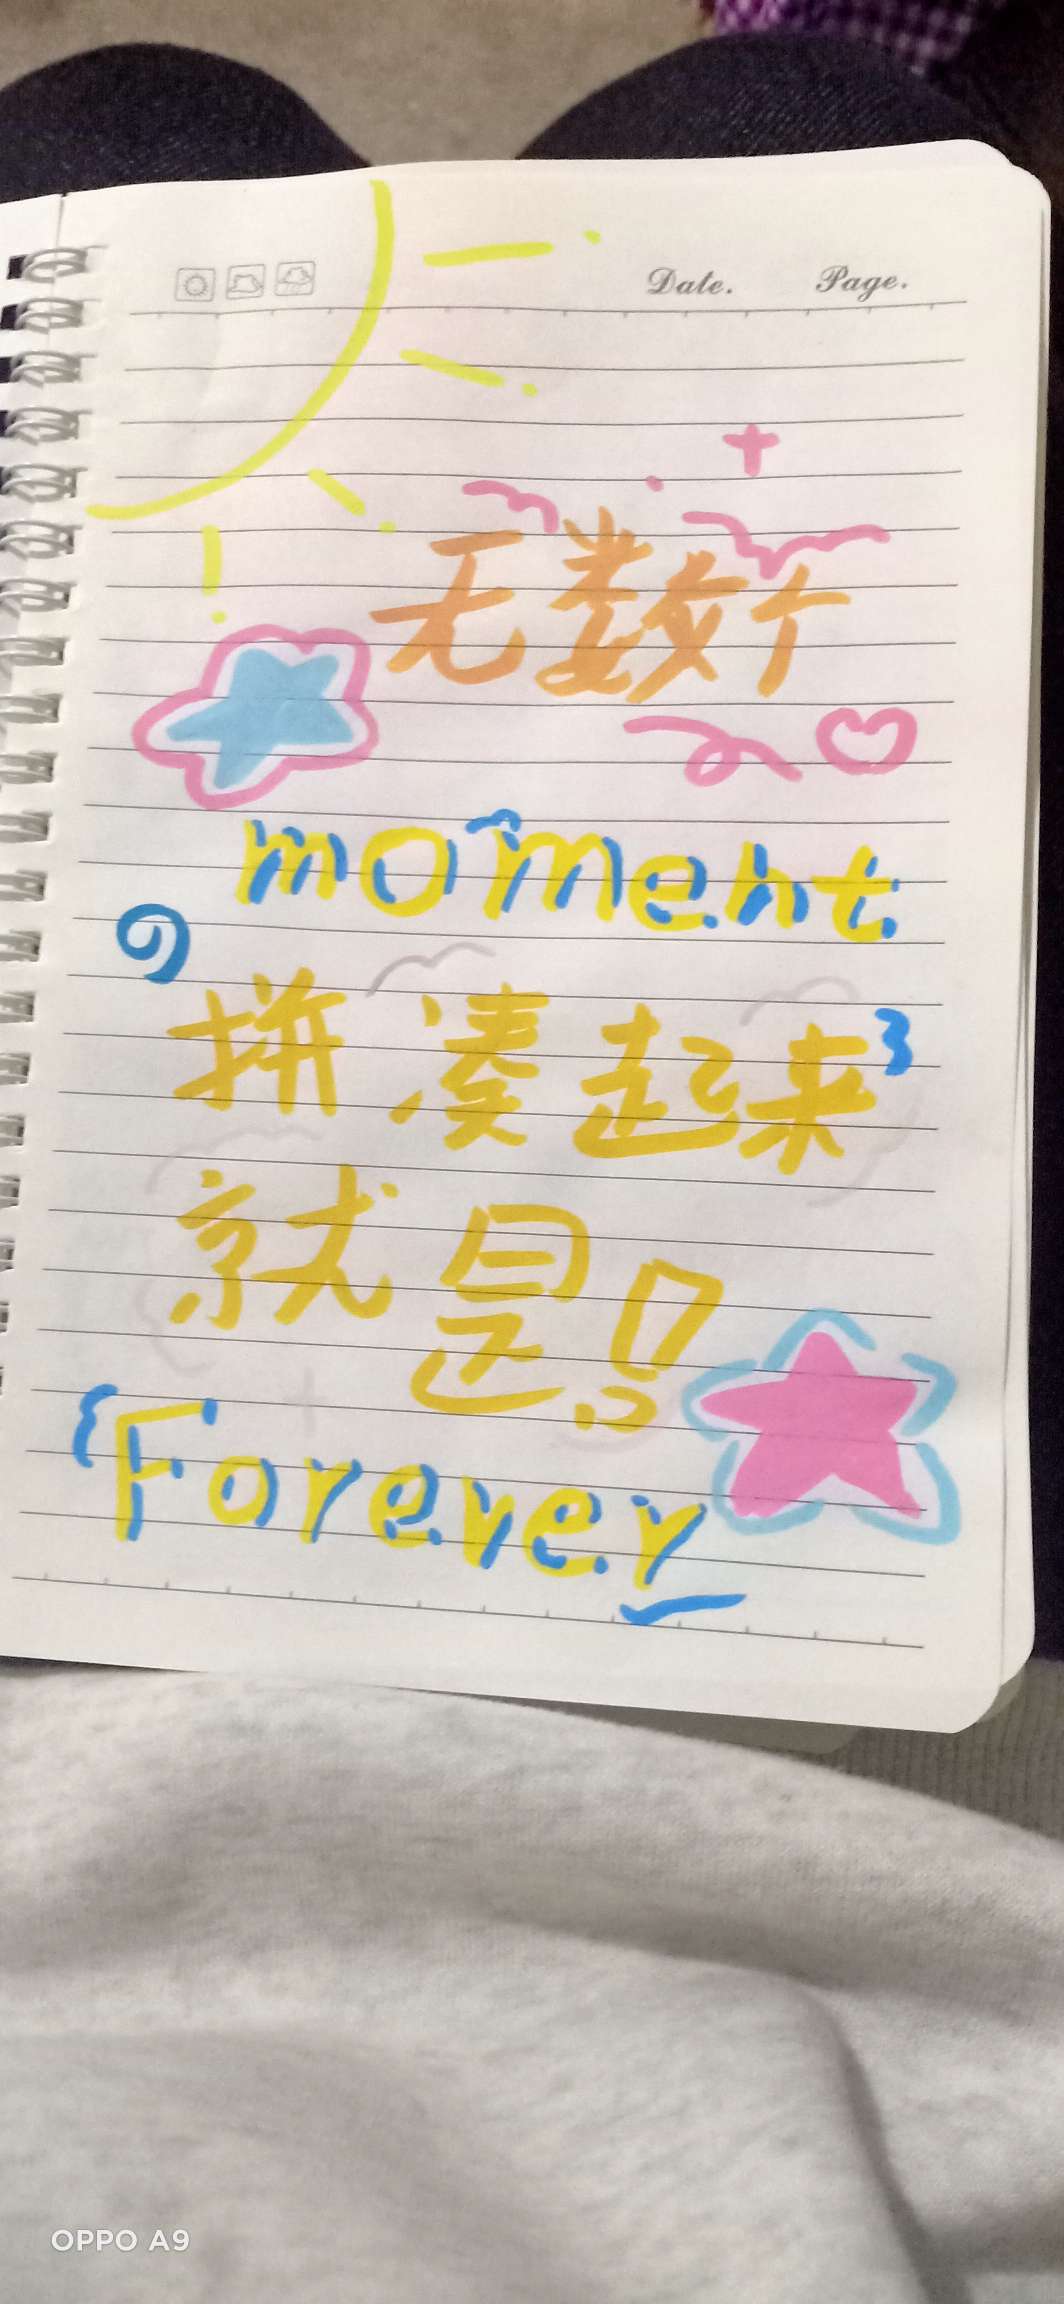 Date. Page.
无数个
moment
拼凑起来
就是!
Forever
OPPO A9